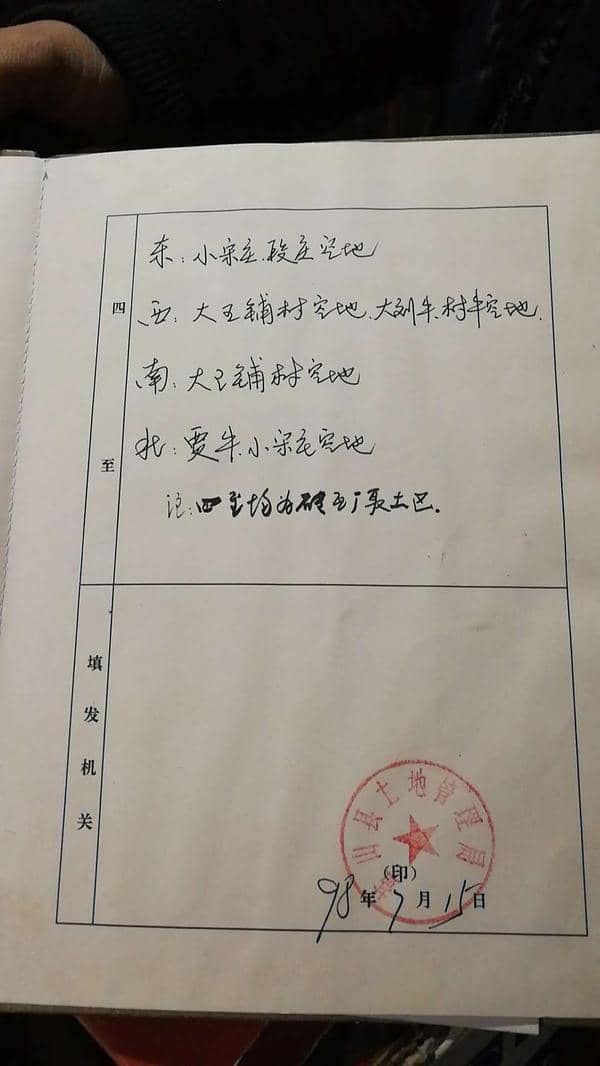 四至
东：小宋庄.段庄空地
西：大王铺村空地.大刘牛.村半空地.
南：大王铺村空地
北：贾牛.小宋庄空地
注：四至均为砖瓦厂取土区.
填发机关
山县土地管理局
（印）
98年7月15日